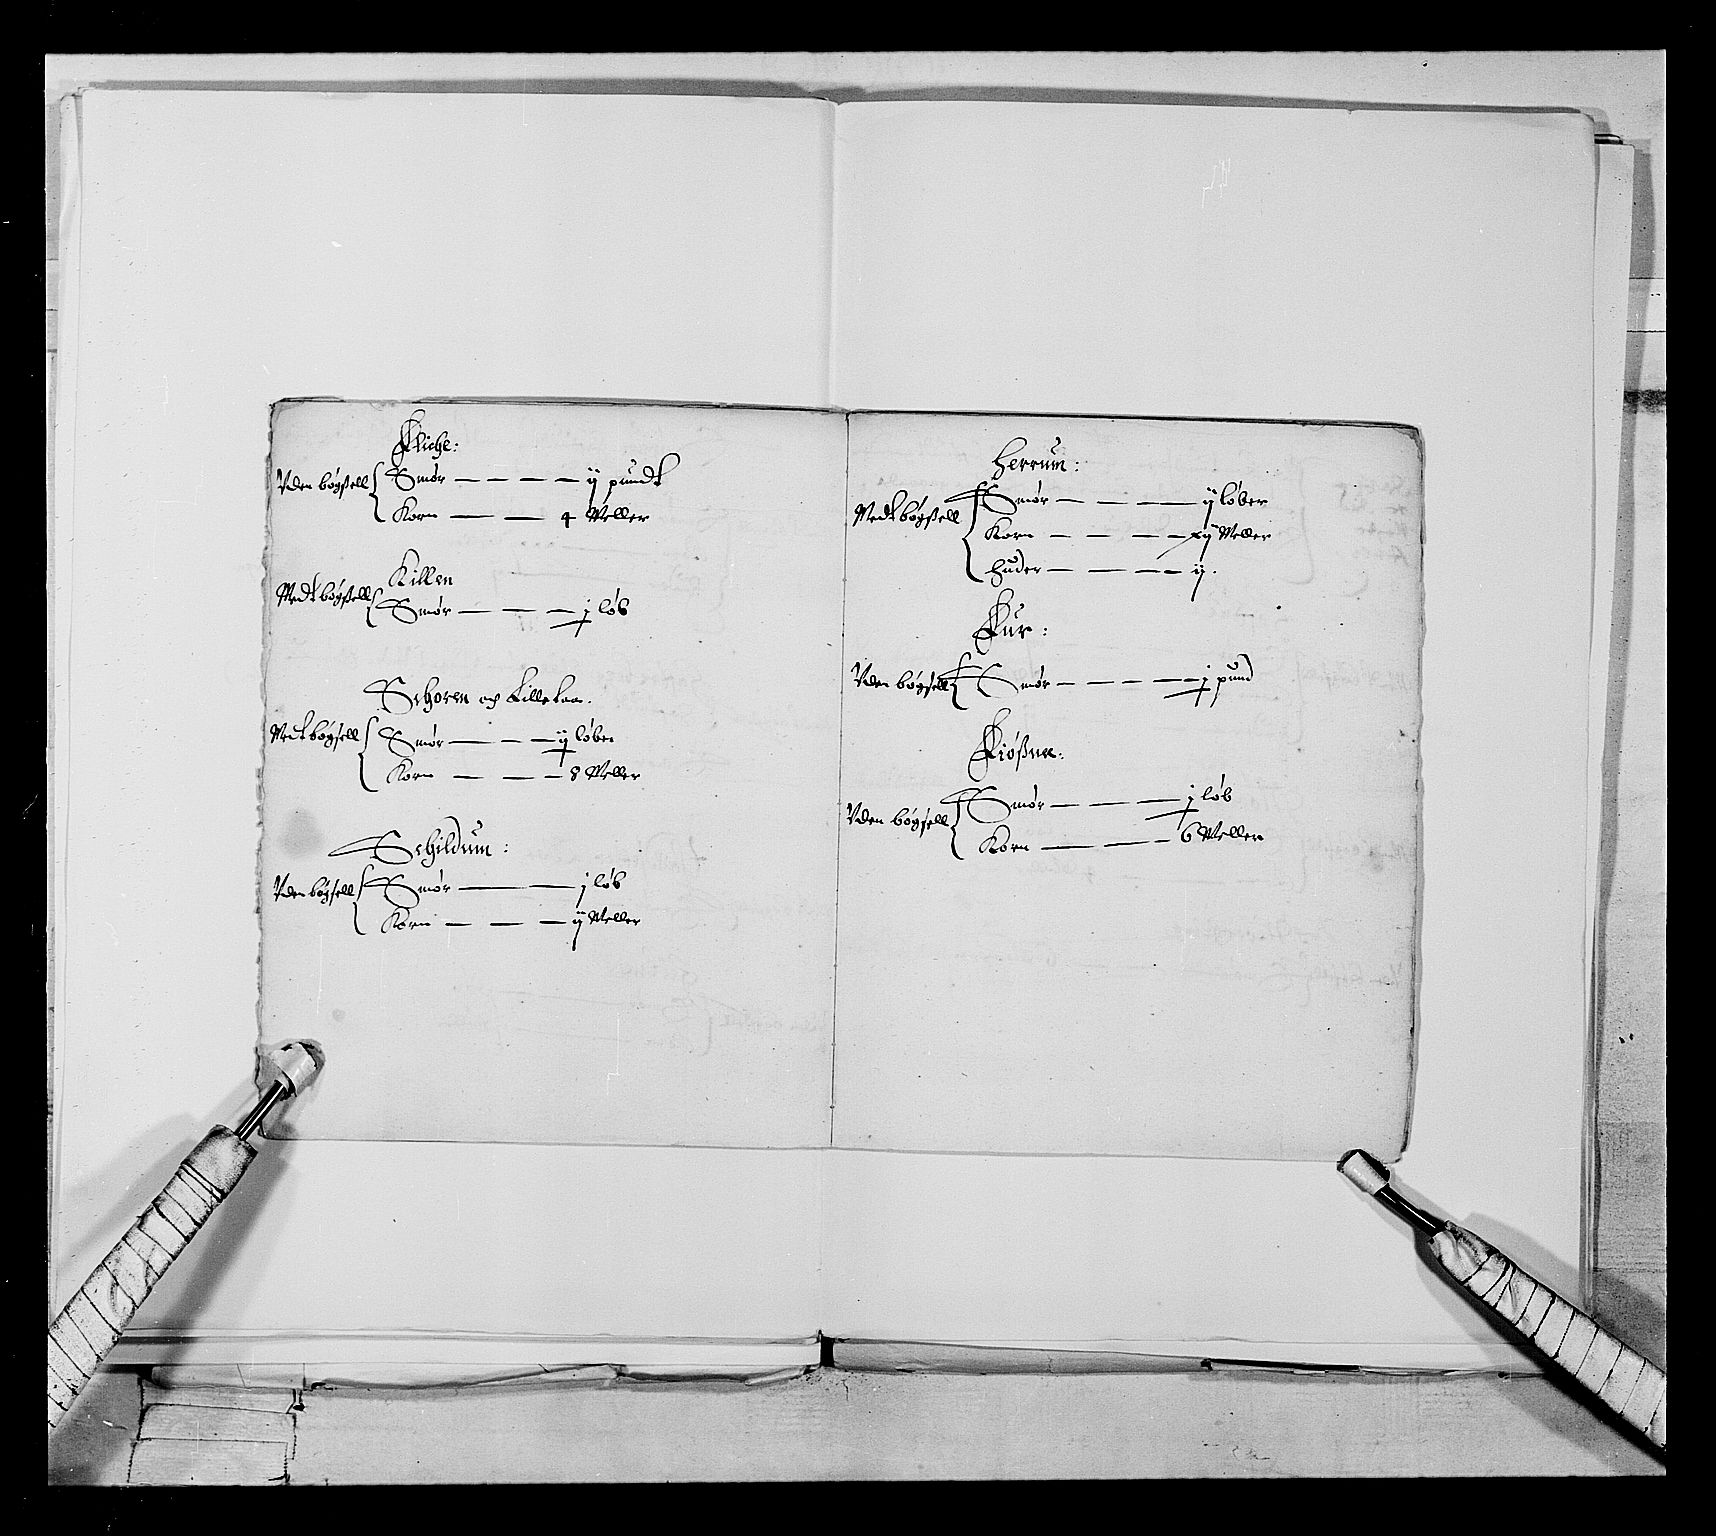 Fliche:
Uden bøgßell Smør — — — — ij pundt
Korn — — 4 Meller
Killen
Medt bøgßell Smør — — — j løb
Schoren och Lille
Medt bøgsell Smør — — — ij løber
Korn — — — 8 Meller
Schildum:
Uden bøgsell Smør — — j løb
Korn — — — ij Meller
Herrum:
Medt bøgßell Smør — — — ij løber
Korn — — — xij Meller
Huder — — — ij.
Fur:
Uden bøgsell Smør — — — — j pund
Fiößne:
Uden bøgsell Smør — — — j løb
Korn — — — 6 Meller